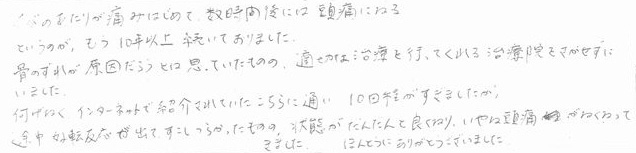 のあたりが痛みはじめて、数時間後には頭痛になる
というのが、もう10年以上続いておりました。
骨のずれが原因だろうとは思っていたものの、適切な治療を行ってくれる治療院をさがせずに
いました。
何げなくインターネットで紹介されていたこちらに通い 10回程がすぎましたが、
途中好転反応が出てすこしつらかったものの、状態がだんだんと良くなり、いやな頭痛がなくなって
きました。 ほんとうにありがとうございました。